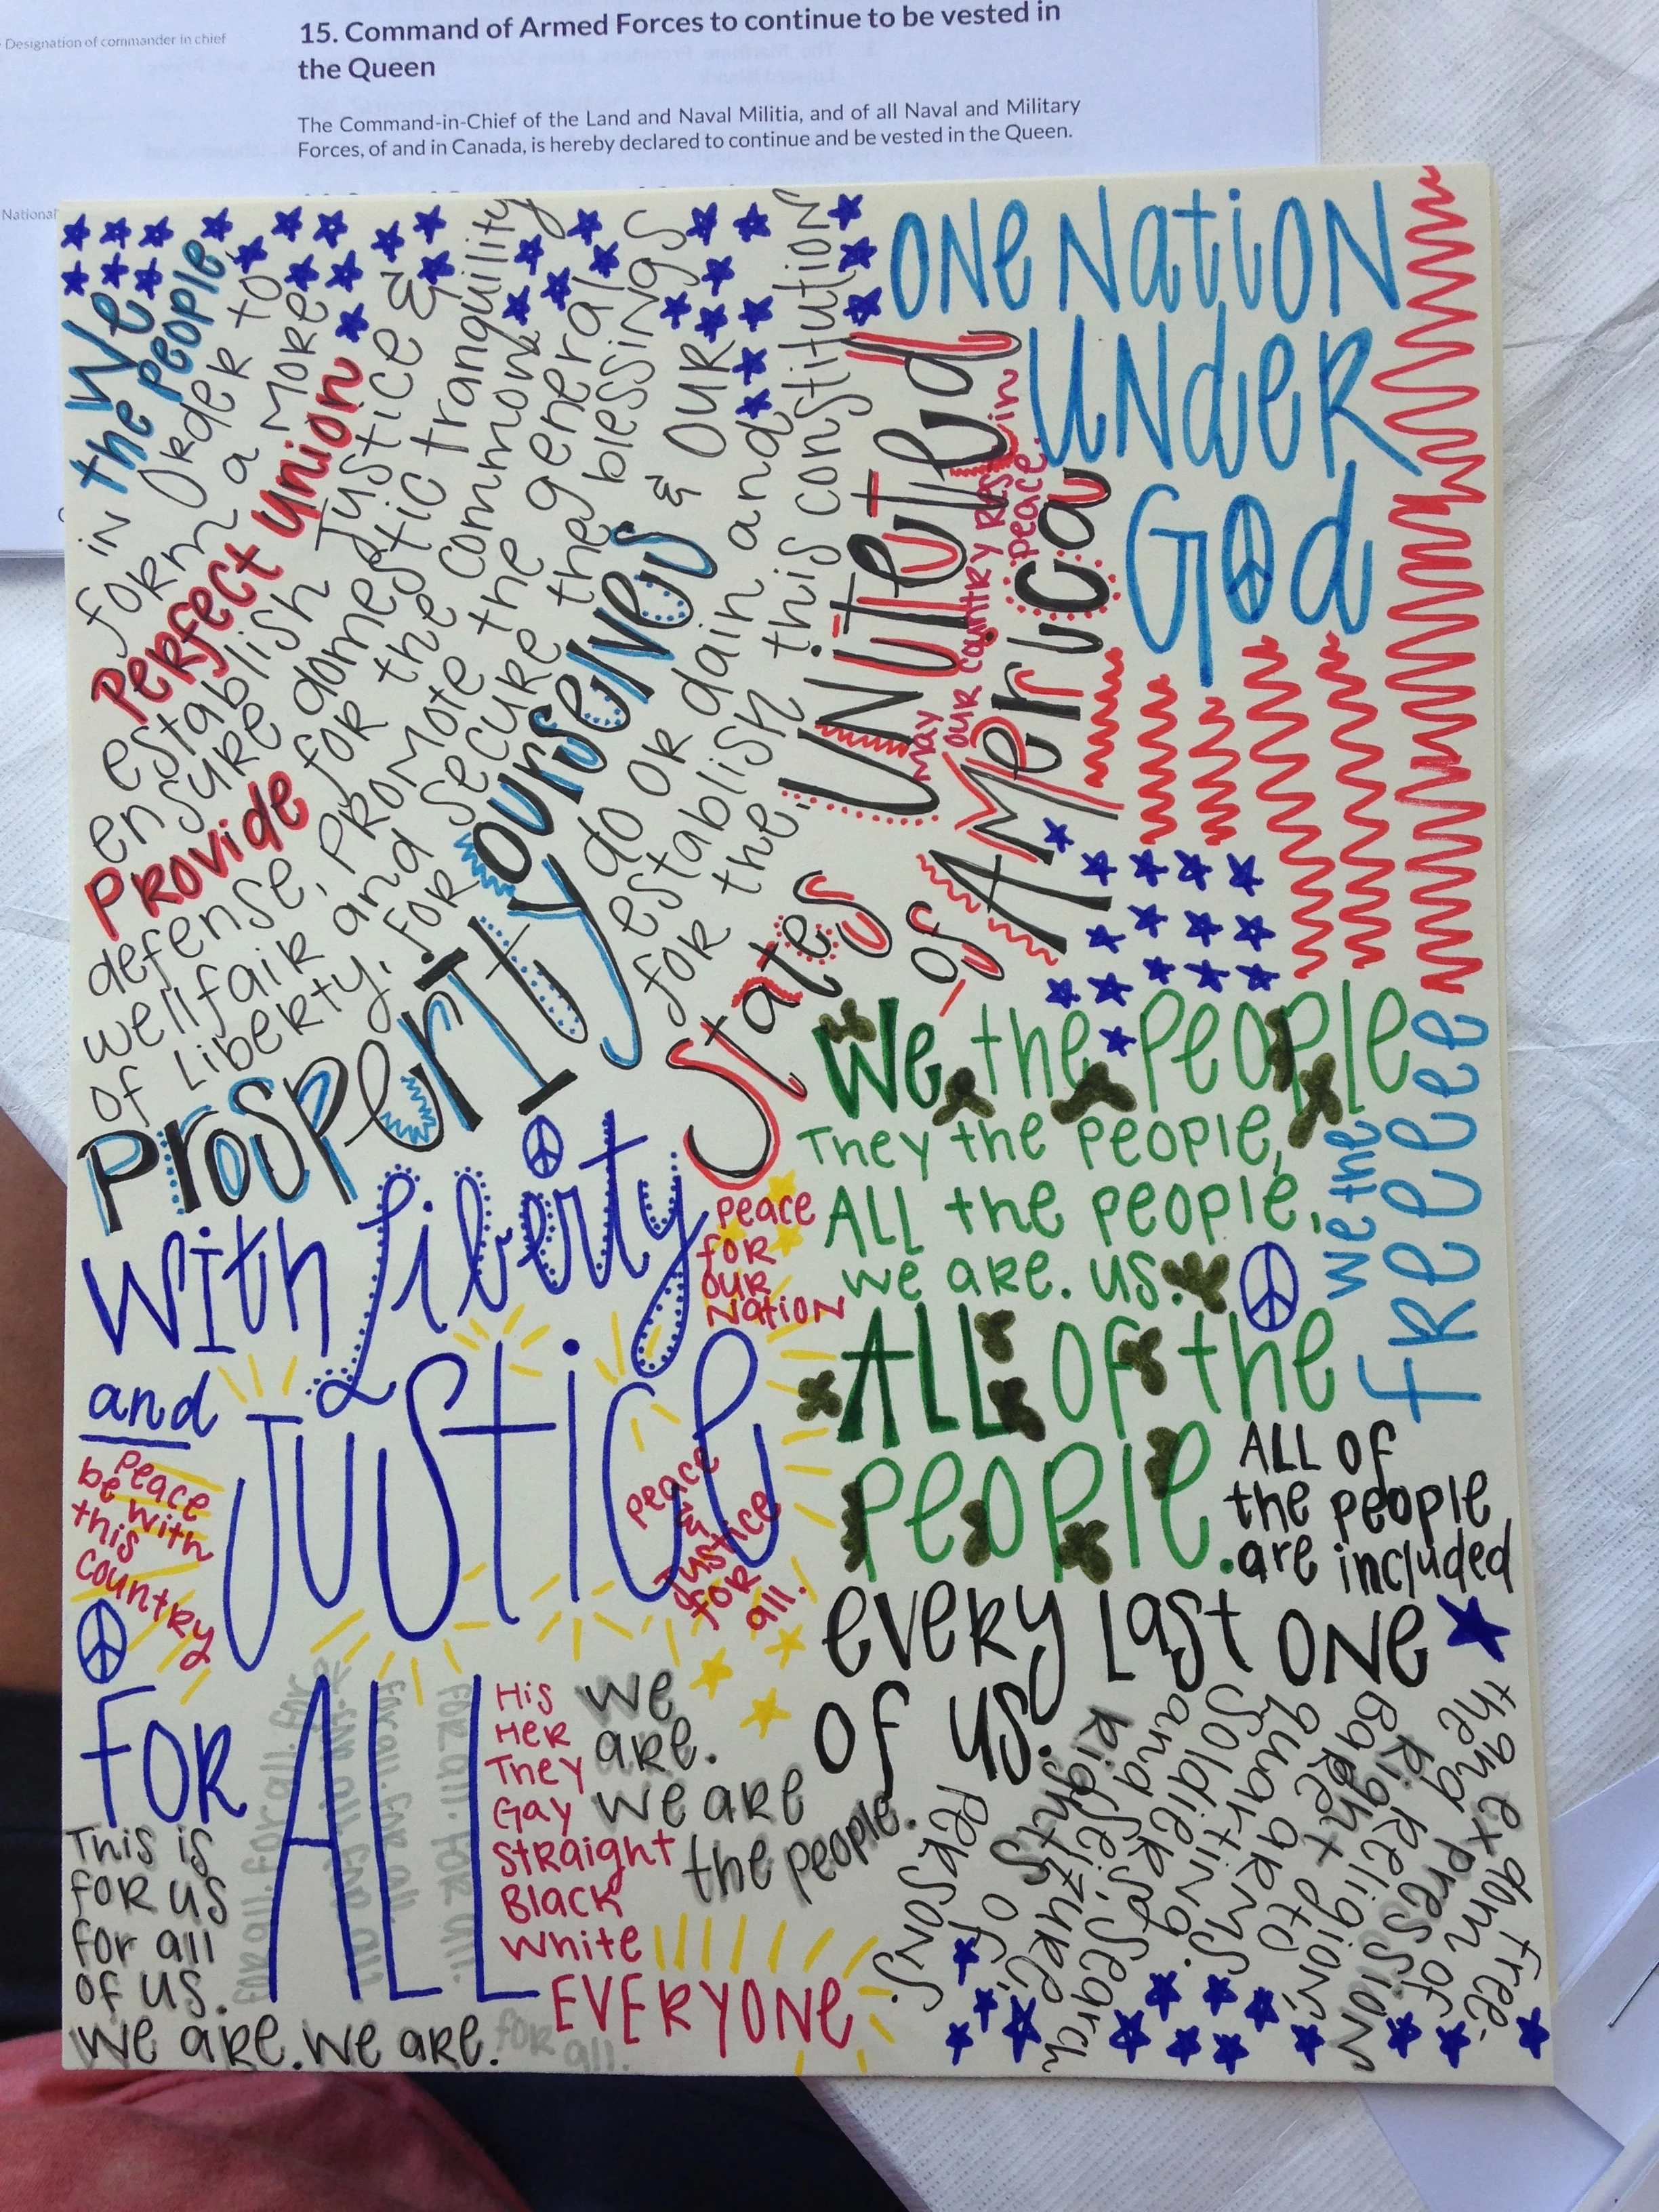 Designation of commander in chief
15. Command of Armed Forces to continue to be vested in
the Queen
The Command-in-Chief of the Land and Naval Militia, and of all Naval and Military
Forces, of and in Canada, is hereby declared to continue and be vested in the Queen.
National
We
the People
in Order to
form a More
Perfect Union
establish Justice &
ensure domestic tranquility
Provide for the common
defense, Promote the general
wellfair and Secure the blessings
of Liberty, for ourselves & our
Prosperity do or dain and
establish this constitution
for the
United
States
of America
May our country Rest in
peace.
One Nation
Under
God
We the People
They the People,
All the people,
we are. us.
All of the
People.
we the
FReeeee
All of
the people
are included
every Last one
of us.
With Liberty
and
Justice
Peace
for
our
Nation
Peace
be with
this
country
Peace
&
Justice
for
all.
For All
for all. for all. for
for all. for all.
for all. for all.
This is
for us
for all
of us.
We are. We are.
for all.
His
Her
They
Gay
Straight
Black
White
EVERYONE
We
are.
We are
the people.
the exdom free-
ang pres of
Right Religion
Baret to
quarting
Soldiers.
and Seizure
Rights of
Persons.